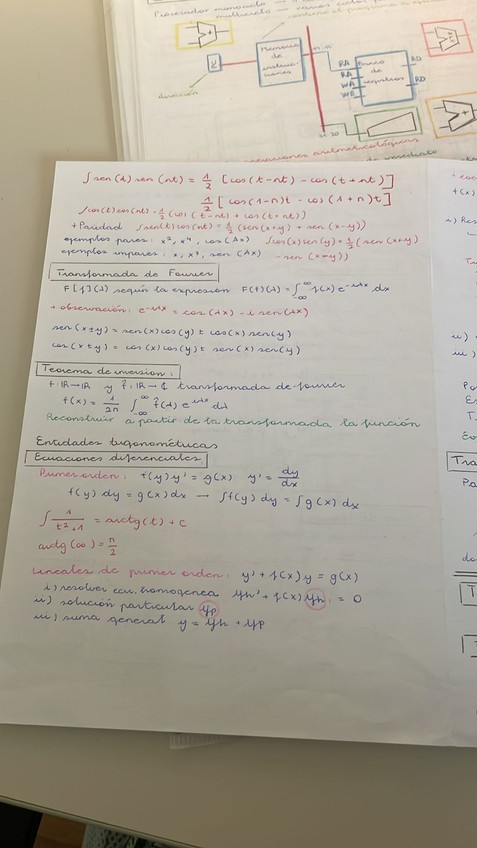 Procesador monociclo →
multiciclo →
Memoria de instrucciones
RA
RA
WA
WE
Banco de registros
RD
RD
dirección
aritmeticológicas
∫ sen(t) sen(nt) = 1/2 [cos(t-nt) - cos(t+nt)]
1/2 [cos(1-n)t - cos(1+n)t]
∫cos(t)cos(nt) = 1/2 (cos(t-nt) + cos(t+nt))
+ Paridad ∫sen(t)cos(nt) = 1/2 (sen(x+y) + sen(x-y))
ejemplos pares: x², x⁴, cos(λx) ∫cos(x)sen(y) = 1/2 (sen(x+y)
ejemplos impares: x, x³, sen(λx) - sen(x-y))
Transformada de Fourier
F[f](λ) según la expresión F(f)(λ) = ∫_{-∞}^{∞} f(x) e^{-iλx} dx
+ observación: e^{-iλx} = cos(λx) - i sen(λx)
sen(x±y) = sen(x)cos(y) ± cos(x)sen(y)
cos(x±y) = cos(x)cos(y) ± sen(x)sen(y)
Teorema de inversion:
f: ℝ→ℝ y f̂: ℝ→ℂ transformada de fourier
f(x) = 1/2π ∫_{-∞}^{∞} f̂(λ) e^{iλx} dλ
Reconstruir a partir de la transformada la función
Entidades trigonométricas
Ecuaciones diferenciales
Primer orden: f(y)y' = g(x) y' = dy/dx
f(y) dy = g(x) dx → ∫f(y) dy = ∫g(x) dx
∫ 1/(t²+1) = arctg(t) + C
arctg(∞) = π/2
Lineales de primer orden: y' + f(x)y = g(x)
i) resolver ecu. homogenea yh' + f(x)yh = 0
ii) solución particular yp
iii) suma general y = yh + yp